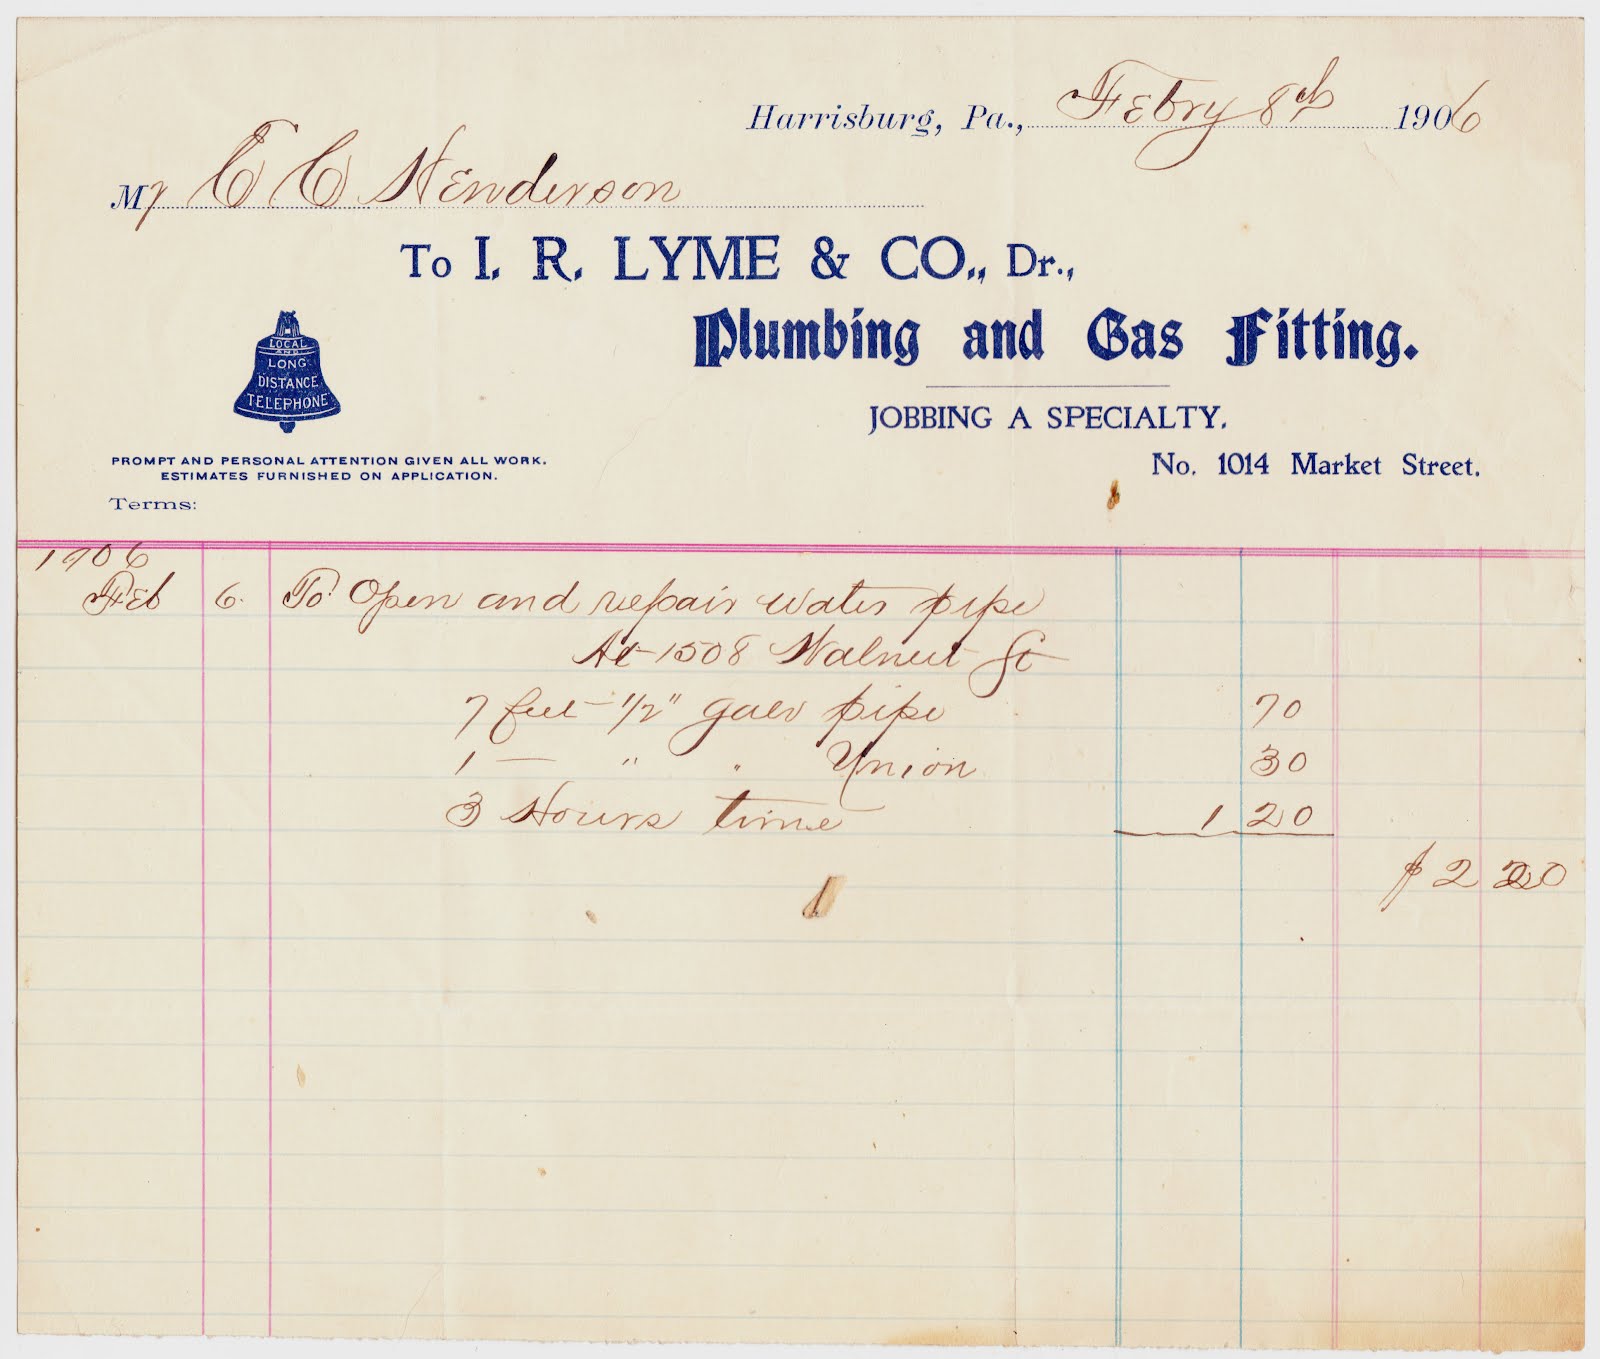 Harrisburg, Pa., Febry 8th 1906
Mr C C Henderson
To I. R. LYME & CO., Dr.,
Plumbing and Gas Fitting.
LOCAL
AND
LONG
DISTANCE
TELEPHONE
JOBBING A SPECIALTY.
PROMPT AND PERSONAL ATTENTION GIVEN ALL WORK.
ESTIMATES FURNISHED ON APPLICATION.
No. 1014 Market Street.
Terms:
1906
Feb 6. To Open and repair water pipe
At 1508 Walnut St
7 feet 1/2" galv pipe 70
1 — " " Union 30
3 Hours time 1 20
$ 2 20